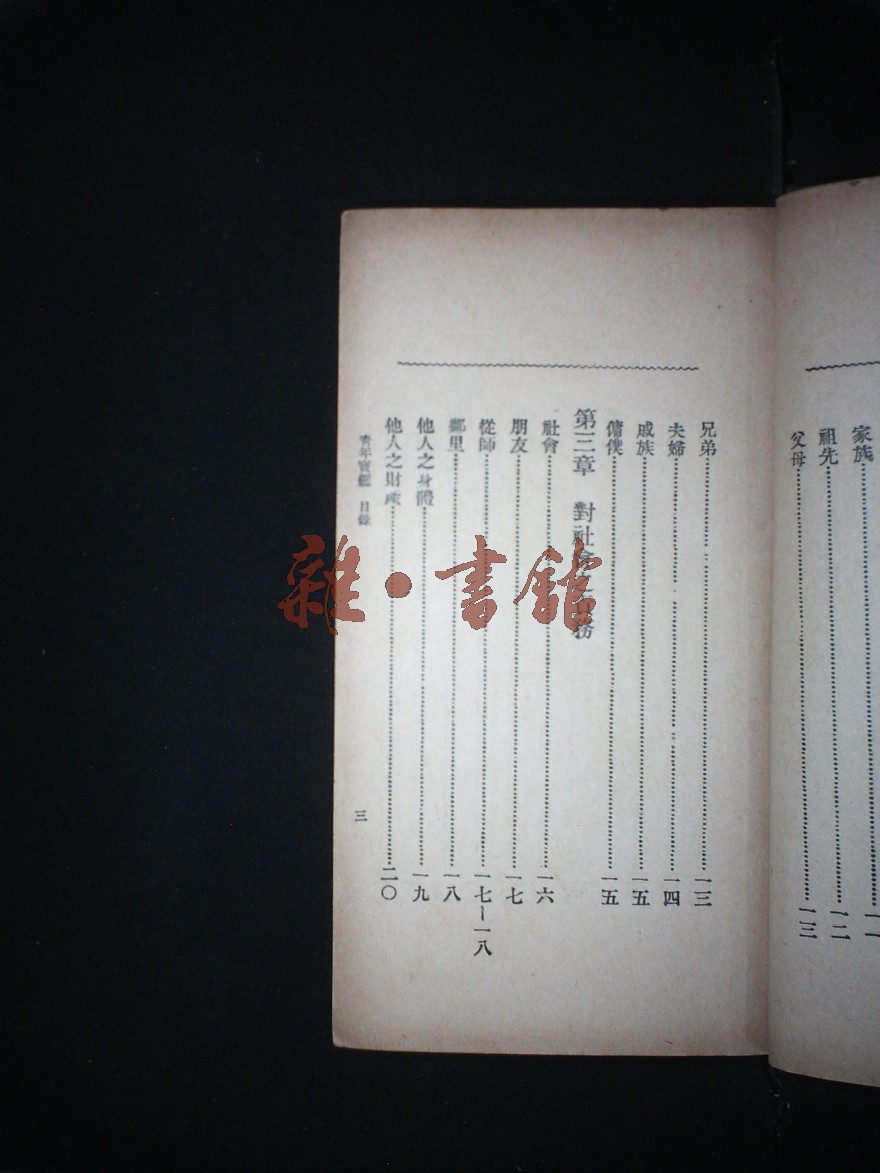 家族⋯⋯一一
祖先⋯⋯一二
父母⋯⋯一三
兄弟⋯⋯一三
夫婦⋯⋯一四
戚族⋯⋯一五
傭僕⋯⋯一五
第三章 對社會之 務
社會⋯⋯一六
朋友⋯⋯一七
從師⋯⋯一七—一八
鄰里⋯⋯一八
他人之身體⋯⋯一九
他人之財產⋯⋯二〇
青年寶鑑 目錄
三
雜·書館